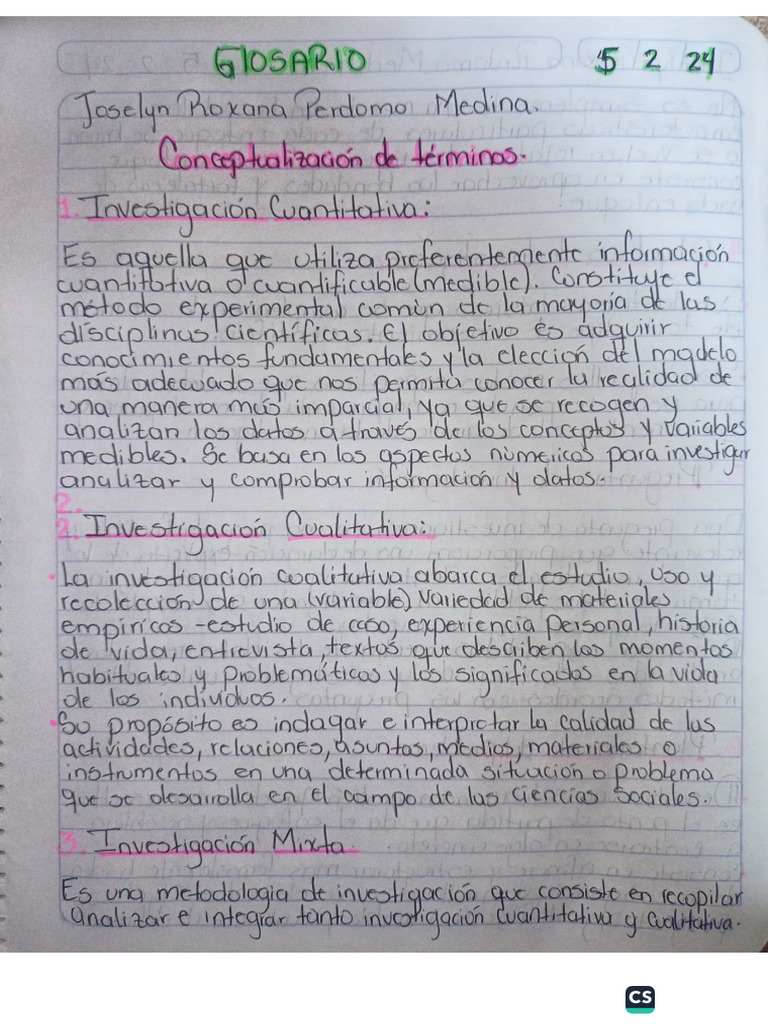 GlOSARIO 5 2 24
Joselyn Roxana Perdomo Medina.
Conceptualización de términos.
1. Investigación Cuantitativa:
Es aquella que utiliza preferentemente información
cuantitativa o cuantificable (medible). Constituye el
método experimental común de la mayoría de las
disciplinas científicas. El objetivo es adquirir
conocimientos fundamentales y la elección del modelo
más adecuado que nos permita conocer la realidad de
una manera más imparcial, ya que se recogen y
analizan los datos a través de los conceptos y variables
medibles. Se basa en los aspectos númericos para investigar
analizar y comprobar información y datos.
2.
2. Investigación Cualitativa:
• La investigación cualitativa abarca el estudio, uso y
recolección de una (variable) variedad de materiales
empíricos -estudio de caso, experiencia personal, historia
de vida, entrevista, textos que describen los momentos
habituales y problemáticos y los significados en la vida
de los individuos.
• Su propósito es indagar e interpretar la calidad de las
actividades, relaciones, asuntos, medios, materiales o
instrumentos en una determinada situación o problema
que se desarrolla en el campo de las ciencias sociales.
3. Investigación Mixta.
Es una metodologia de investigación que consiste en recopilar
analizar e integrar tanto investigación cuantitativa y cualitativa.
CS